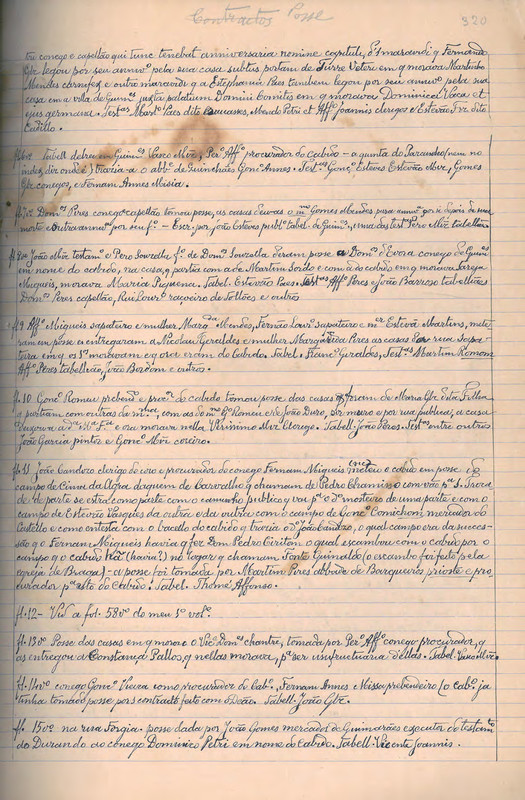 Contractos Posse
320
tri conego e capellão qui tunc tenebat anniversaria nomine capituli, e 1 maravidi q Fernando
Glz legou por seu annivº pela sua casa subtus portam de Turre Veteri em q morava Martinho
Mendes carnifex e outro maravidi q a Estephania Paes tambem legou por seu annivº pela sua
casa em a villa de Guimes juxta palatium Domini Comitis em q morava Dominicos Vaca et
ejus germana. Testas Mart. Paes dito Mendo Petri et Affº Joannis clerigos e Estevão Frz dito
Cadilho.
fl. 6vº Tabell delrei em Guimes Vasco Mlz, Perº Affº procurador do Cabido - a quinta do Paranho (nem no
index diz onde é) traria-a o abbe de Guinchães Gonc Annes. Testas Gonçº Esteves Estevão Mlz, Gomes
Glz conegos, e Fernam Annes Missia.
fl. 7vº Domos Pires conego capellão tomou posse, as casas de uvas o mº Gomes Mendes, para annivº por si depois de sua
morte e outro annivº por seu fº - Escr. por João Esteves publº tabel. de Guimes, uma das testas Pero Mlz tabellião
fl. 8vº João Mlz testamº e Pero Sourella fº de Domos Sourella deram posse a Domos d'Evora conego de Guimes
em nome do cabido, na casa, q partia com a de Martim Sordo e com a do cabido em q morava Tareja
Migueis, morava Maria Piquena. Tabel. Estevão Paes. Testas Affº Peres e João Barroso tabelliães
Domos Peres capellão, Rui Lourº raçoeiro de Tollões e outros
fl. 9 Affº Migueis sapateiro e mulher Margda Mendes, Fernão Lourº sapateiro e mer Estevã Martins, mete
ram em posse e entregaram a Nicolau Geraldes e mulher Margarida Pires as casas da rua Sapa
teira em q os 1os moravam e q ora eram do Cabido. Tabel. Francº Geraldes, Testas Martim Romom
Affº Peres tabellião, João Bordom e outros.
fl. 10 Gonçº Romeu prebenº e procor do cabido tomou posse das casas q foram de Maria Glz dita Filha
q partiam com outras da mma, com as do mo Gº Romeu e de João Duro, por muro e por rua publica, a casa
e ora morava nella Vivimino Mlz clerigo. Tabell. João Peres. Testas entre outros
João Garcia pintor e Gonçº Mlz coreiro.
fl. 11 João Candozo clerigo do coro e procurador do conego Fernam Migueis meteu o cabido em posse do
campo de Cima da Agra daquem de Carvalho q chamam de Pedro Chamino como vão pª S. Torca
de de parte se extra como parte com o caminho publico q vai pª o dº mosteiro de uma parte e com o
campo de Estevão Vasques da outra e da outra com o campo de Gonçº Conichom, mercador do
Castello e como entesta com o bacello do cabido q traria o dº João Candozo, o qual campo era da succes-
são q o Fernam Migueis havia q fez Dom Pedro Cirition o qual escambou com o cabido por o
campo q o cabido hã (havia?) no logar q chamam Fonte Guinaldo (o escambo foi feito pela
egreja de Braga) - a posse foi tomada por Martim Pires abbade de Barqueiros prioste e pro-
curador pª esto do Cabido. Tabel. Thomé Affonso.
fl. 12 - Vid a fol. 58vº do meu 1º volº
fl. 13vº Posse das casas em q mora o Vicº Domos chantre, tomada por Perº Affº conego procurador, q
as entregou a Constança Pallos q nellas morava, pª ser usufructuaria dellas. Tabel. Vasco Mlz
fl. 14vº conego Gonçº Vieira como procurador do cabº, Fernam Annes Missa prebendeiro (o cabº já
tinha tomado posse por 1 contracto feito com o Deão. Tabell. João Glz.
fl. 15vº na rua Forgia. posse dada por João Gomes mercador de Guimarães executor do testamº
do Durando ao conego Dominico Petri em nome do Cabido. Tabell. Vicente Joannis.